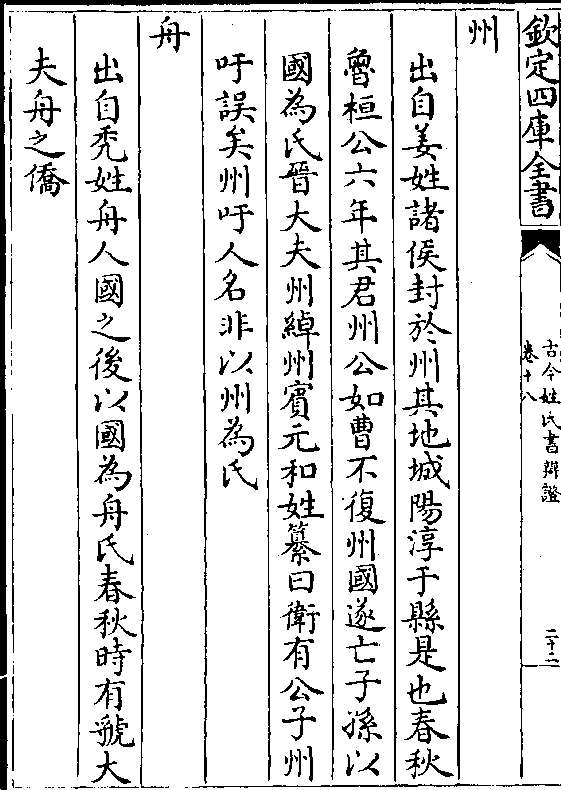 欽定四庫全書
古今姓氏書辯證
卷十八
二十二
州
出自姜姓諸侯封於州其地城陽淳于縣是也春秋
魯桓公六年其君州公如曹不復州國遂亡子孫以
國為氏晉大夫州綽州賓元和姓纂曰衛有公子州
吁誤矣州吁人名非以州為氏
舟
出自禿姓舟人國之後以國為舟氏春秋時有虢大
夫舟之僑